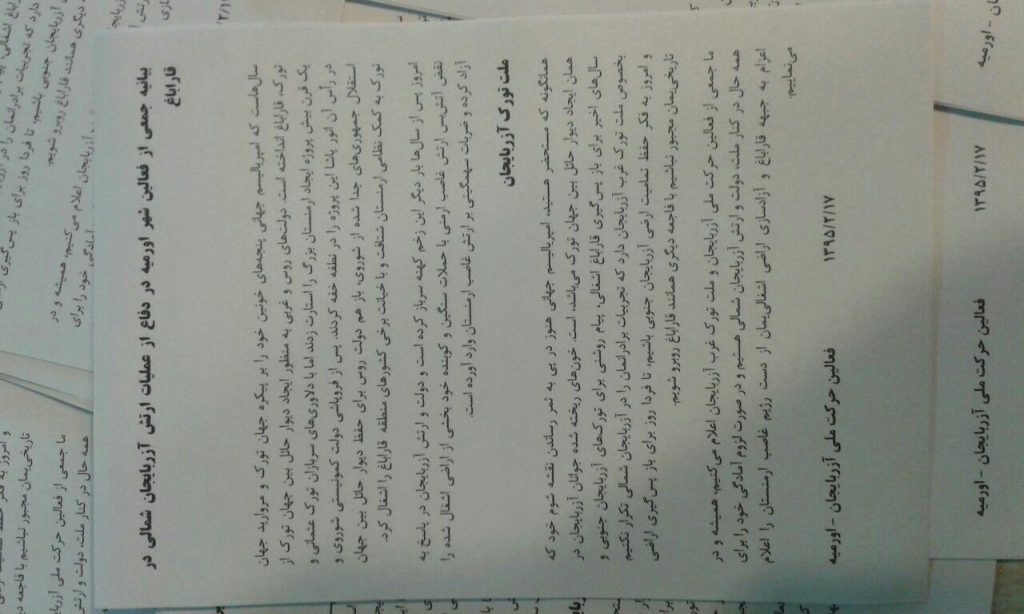 بیانیه جمعی از فعالین شهر اورمیه در دفاع از عملیات ارتش آزربایجان شمالی در
قاراباغ
سال‌هاست که امپریالیسم جهانی پنجه‌های خونین خود را بر پیکره جهان تورک و مروارید جهان
تورک، قاراباغ انداخته است. دولت‌های روس و غربی به منظور ایجاد دیوار حائل بین جهان تورک از
یک قرن پیش پروژه ایجاد ارمنستان بزرگ را استارت زدند اما با دلاوری‌های سربازان تورک عثمانی و
در رأس آن انور پاشا این پروژه را در نطفه خفه کردند. پس از فروپاشی دولت کمونیستی شوروی و
استقلال جمهوری‌های جدا شده از شوروی، باز هم دولت روس برای حفظ دیوار حائل بین جهان
تورک به کمک نظامی ارمنستان شتافت و با خیانت برخی کشورهای منطقه قاراباغ را اشغال کرد.
امروز پس از سال‌ها بار دیگر این زخم کهنه سرباز کرده است و دولت و ارتش آزربایجان در پاسخ به
نقض آتش‌بس ارتش غاصب ارمنی با حملات سنگین و کوبنده خود بخشی از اراضی اشغال شده را
آزاد کرده و ضربات سهمگینی بر ارتش غاصب ارمنستان وارد آورده است.
ملت تورک آزربایجان
همانگونه که مستحضر هستید، امپریالیسم جهانی هنوز در پی به ثمر رساندن نقشه شوم خود که
همان ایجاد دیوار حائل بین جهان تورک می‌باشد، است. خون‌های ریخته شده جوانان آزربایجان در
سال‌های اخیر برای باز پس‌گیری قاراباغ اشغالی پیام روشنی برای تورک‌های آزربایجان جنوبی و
بخصوص ملت تورک غرب آزربایجان دارد که تجربیات برادرانمان را در آزربایجان شمالی تکرار نکنیم
و امروز به فکر حفظ تمامیت ارضی آزربایجان جنوبی باشیم، تا فردا روز برای باز پس‌گیری اراضی
تاریخی‌مان مجبور نباشیم با فاجعه دیگری همانند قاراباغ روبرو شویم.
ما جمعی از فعالین حرکت ملی آزربایجان و ملت تورک غرب آزربایجان اعلام می‌کنیم، همیشه و در
همه حال در کنار ملت، دولت و ارتش آزربایجان شمالی هستیم و در صورت لزوم آمادگی خود را برای
اعزام به جبهه قاراباغ و آزادسازی اراضی اشغالی‌مان از دست رژیم غاصب ارمنستان را اعلام
می‌نماییم.
فعالین حرکت ملی آزربایجان - اورمیه ۱۳۹۵/۲/۱۷
فعالین حرکت ملی آزربایجان - اورمیه ۱۳۹۵/۲/۱۷